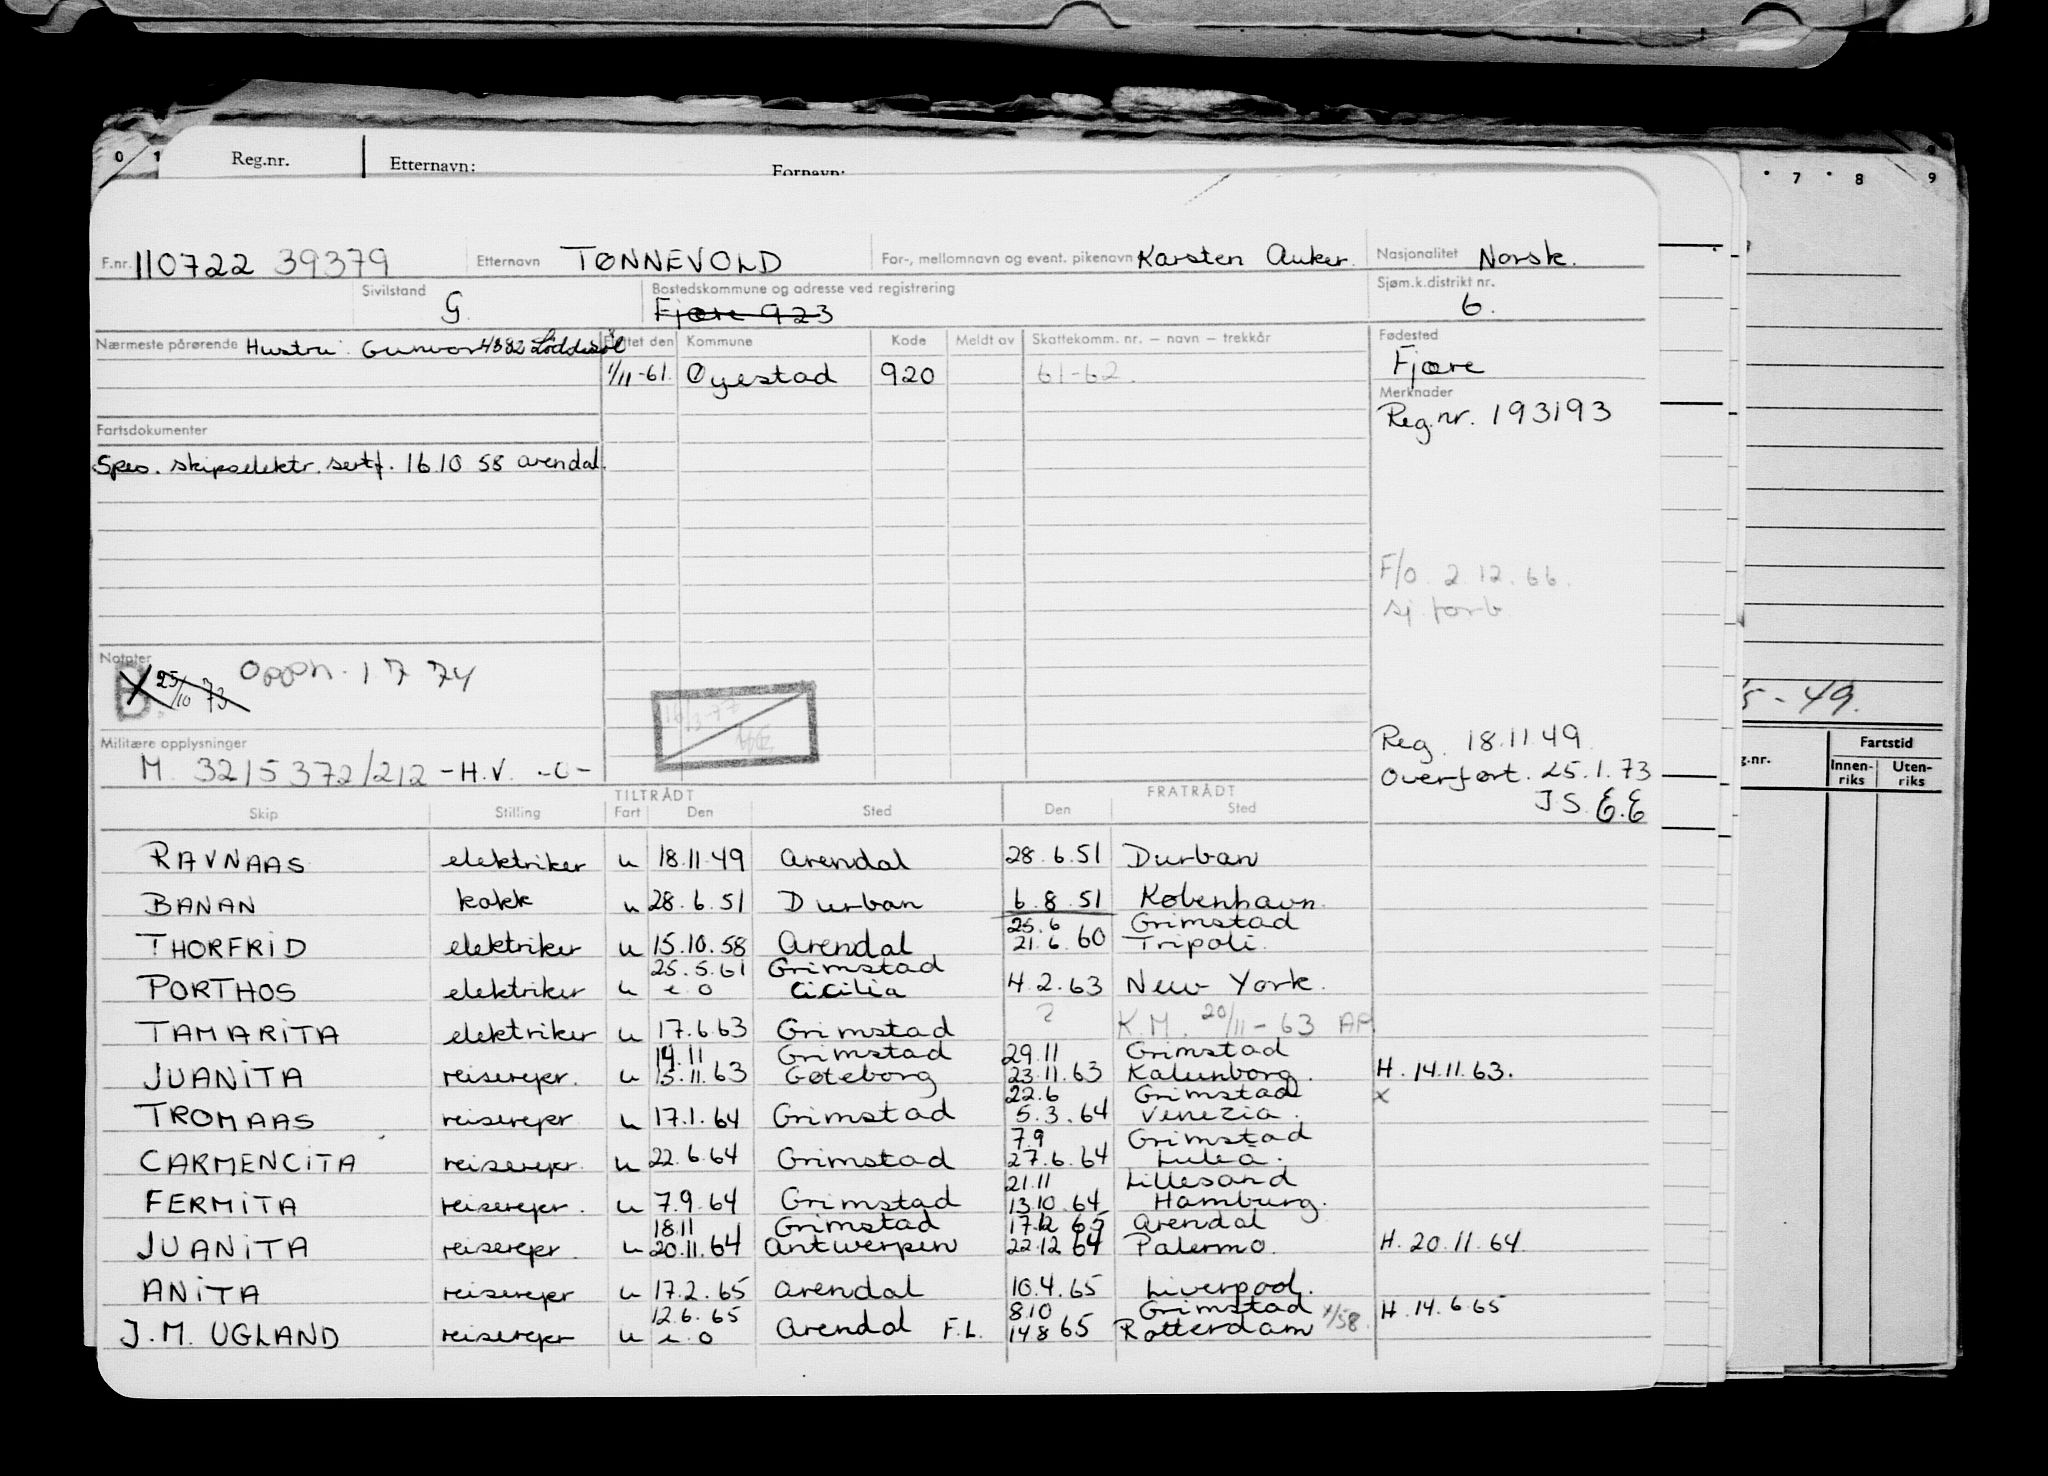 0 1
Reg.nr. Etternavn: Fornavn:
7 8 9
F.nr. 110722 39379 Etternavn TØNNEVOLD For-, mellomnavn og event. pikenavn Karsten Anker. Nasjonalitet Norsk.
Sivilstand G. Bostedskommune og adresse ved registrering Fjære 923 Sjøm.k.distrikt nr. 6.
Nærmeste pårørende Hustru: Gunvor 4882 Løddesøl
Flyttet den Kommune Kode Meldt av Skattekomm. nr. – navn – trekkår Fødested
1/11-61. Øyestad 920 61-62. Fjære
Merknader
Reg.nr. 193193
Fartsdokumenter
Spes. skipselektr. sertf. 16.10 58 Arendal.
F/O. 2.12.66.
sj. forb.
Notater
B. 25/10 73 Opph. 1 7 74
5-49.
Reg. 18.11.49.
Overført. 25.1.73
J.S. E.E
Militære opplysninger
M. 3215372/212 -H.V. -0-
g.nr. Fartstid
Innen-riks Uten-riks
TILTRÅDT FRATRÅDT
Skip Stilling Fart Den Sted Den Sted
RAVNAAS elektriker u 18.11.49 Arendal 28.6.51 Durban
BANAN kokk u 28.6.51 Durban 6.8.51 København.
25.6 Grimstad
THORFRID elektriker u 15.10.58 Arendal 21.6.60 Tripoli.
25.5.61 Grimstad
PORTHOS elektriker u e.o Cicilia 4.2.63 New York.
TAMARITA elektriker u 17.6.63 Grimstad ? K.M. 20/11-63 AP
14.11 Grimstad 29.11 Grimstad
JUANITA reiserepr. u 15.11.63 Gøteborg 23.11.63 Kalunborg. H. 14.11.63.
22.6 Grimstad x
TROMAAS reiserepr u 17.1.64 Grimstad 5.3.64 Venezia.
7.9 Grimstad
CARMENCITA reiserepr. u 22.6.64 Grimstad 27.6.64 Luleå.
21.11 Lillesand
FERMITA reiserepr. u 7.9.64 Grimstad 13.10.64 Hamburg.
18.11 Grimstad 17.12 65 Arendal
JUANITA reiserepr. u 20.11.64 Antwerpen 22.12 64 Palermo. H. 20.11.64.
ANITA reiserepr u 17.2.65 Arendal 10.4.65 Liverpool.
12.6.65 8.10 Grimstad H. 14.6.65
J.M. UGLAND reiserepr u e.o Arendal F.L. 14 8 65 Rotterdam